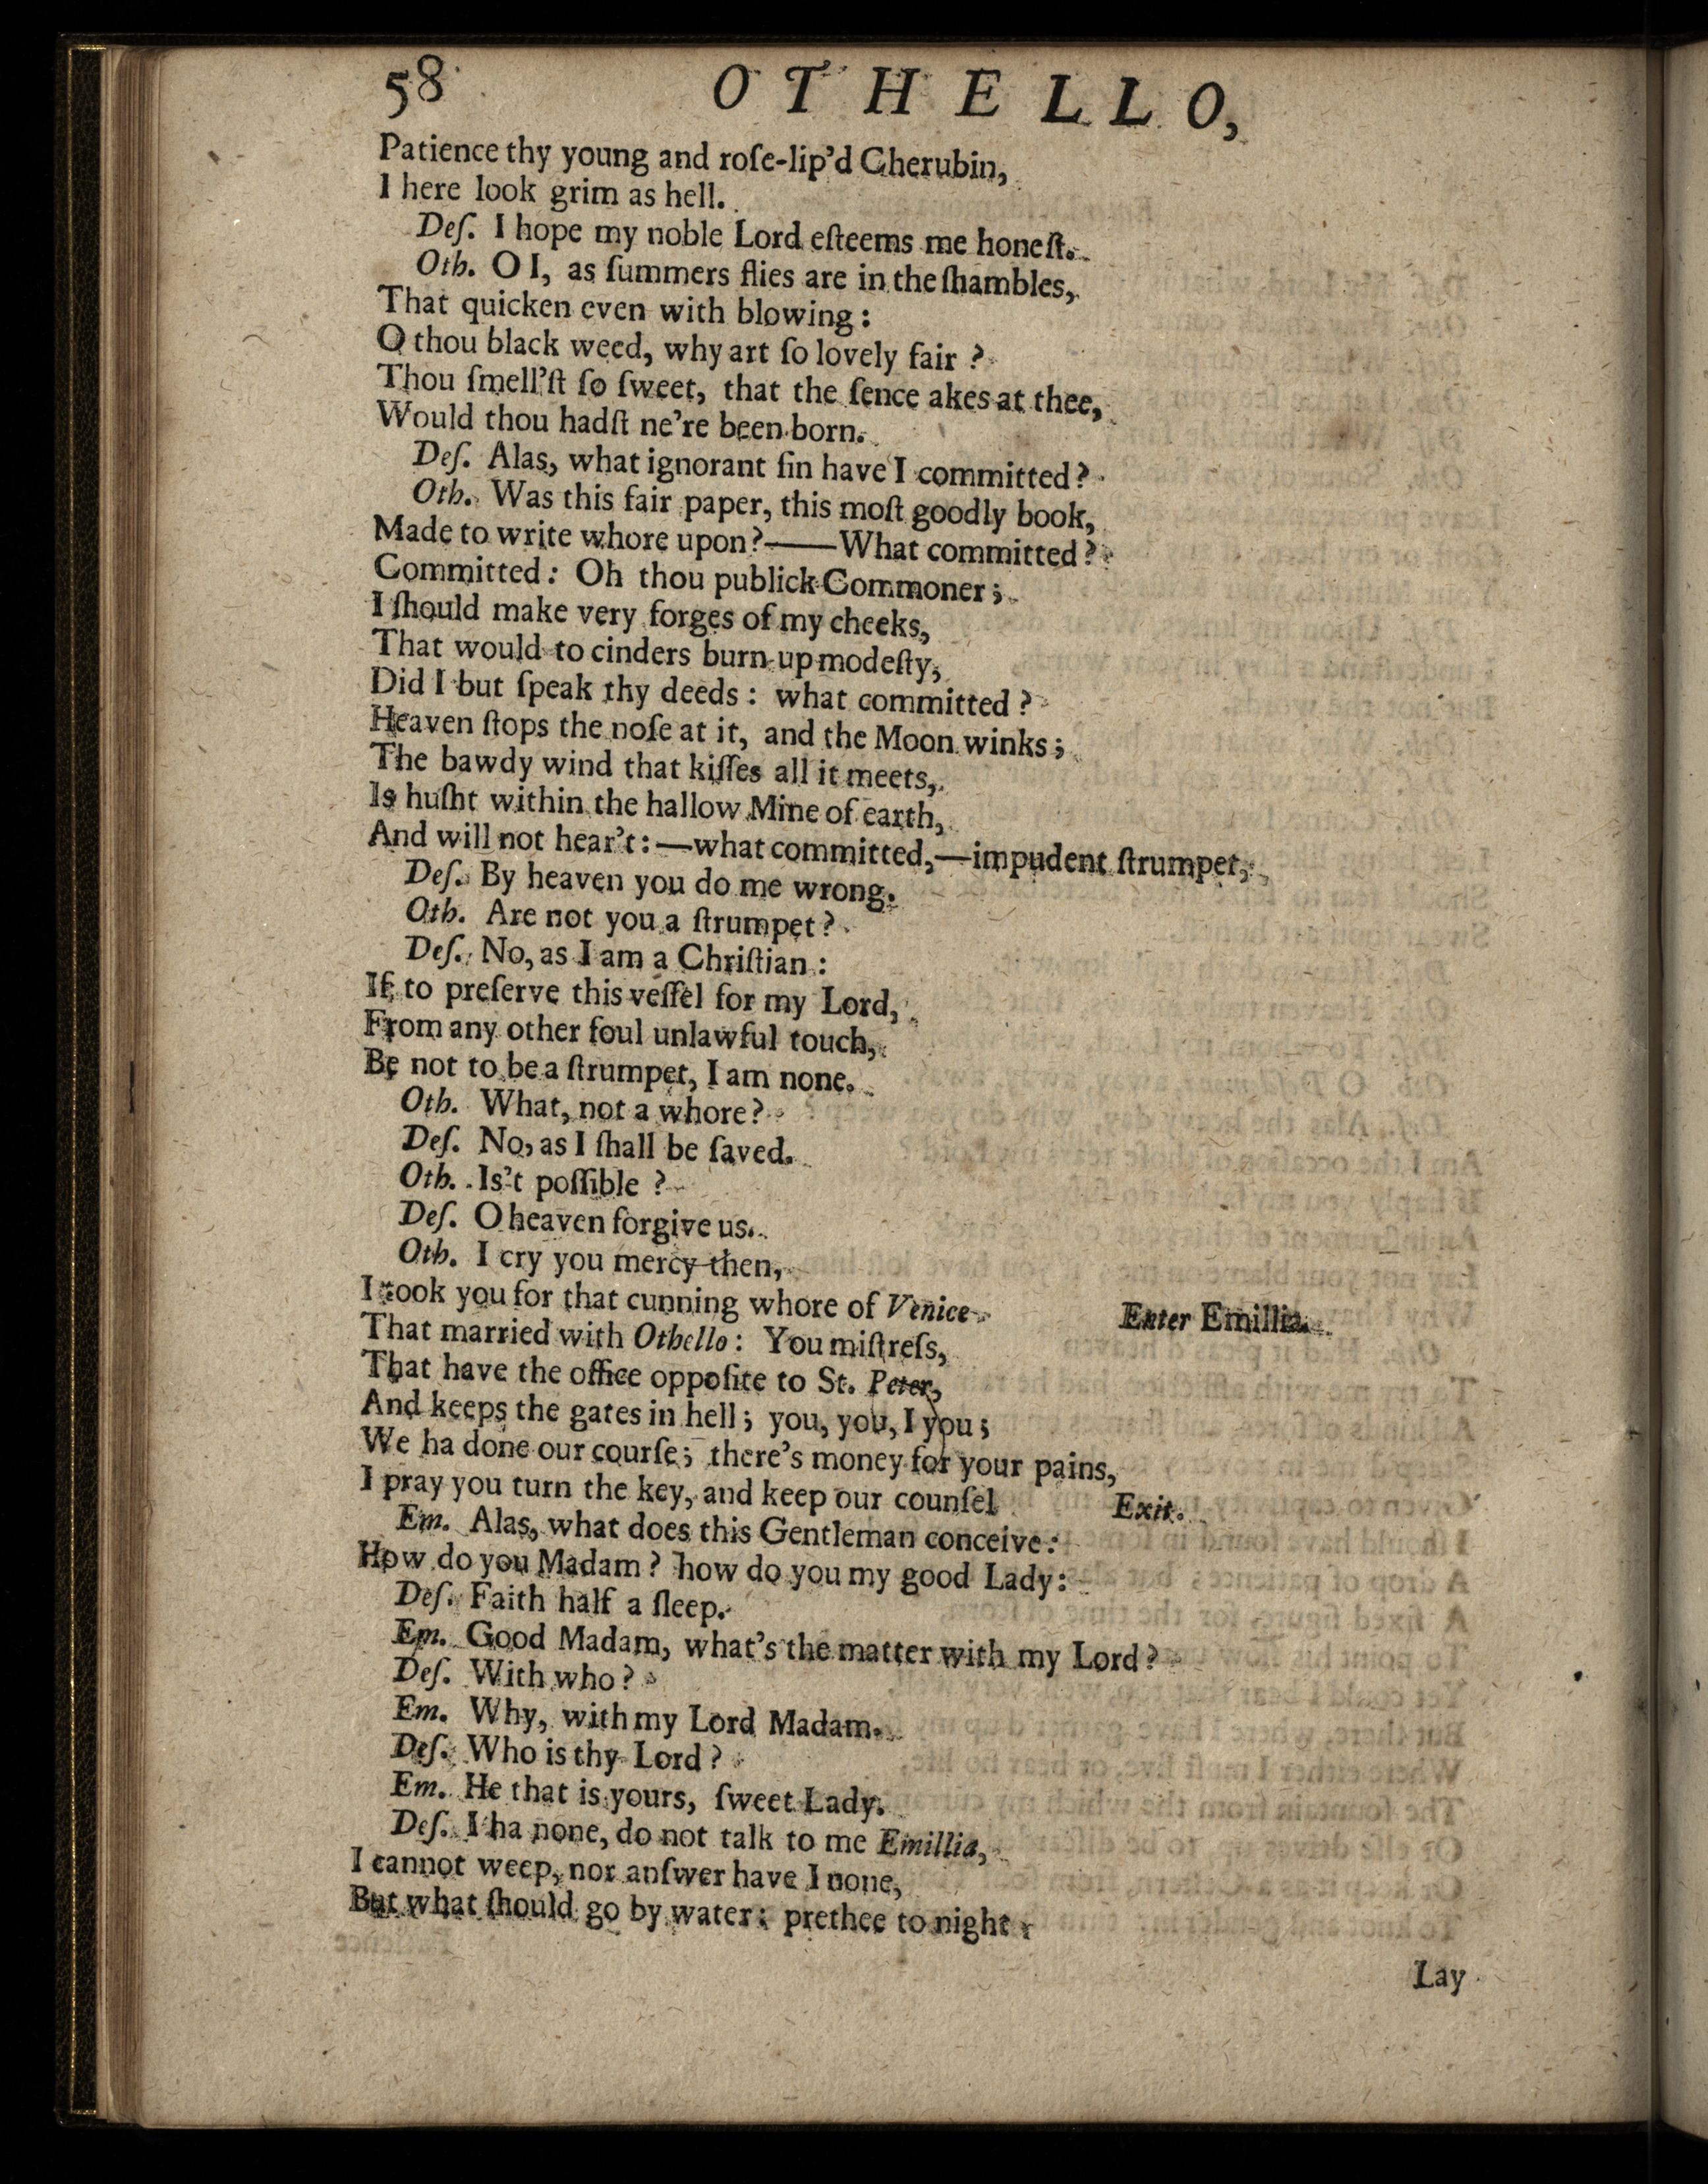 58 OTHELLO,
Patience thy young and roſe-lip'd Cherubin,
I here look grim as hell.
Deſ. I hope my noble Lord eſteems me honeſt.
Oth. O I, as ſummers flies are in the ſhambles,
That quicken even with blowing:
O thou black weed, why art ſo lovely fair?
Thou ſmell'ſt ſo ſweet, that the ſence akes at thee,
Would thou hadſt ne're been born.
Deſ. Alas, what ignorant ſin have I committed?
Oth. Was this fair paper, this moſt goodly book,
Made to write whore upon?——What committed?
Committed: Oh thou publick Commoner;
I ſhould make very forges of my cheeks,
That would to cinders burn up modeſty,
Did I but ſpeak thy deeds: what committed?
Heaven ſtops the noſe at it, and the Moon winks;
The bawdy wind that kiſſes all it meets,
Is huſht within the hallow Mine of earth,
And will not hear't:—what committed,—impudent ſtrumpet,
Deſ. By heaven you do me wrong.
Oth. Are not you a ſtrumpet?
Deſ. No, as I am a Chriſtian:
If to preſerve this veſſel for my Lord,
From any other foul unlawful touch,
Be not to be a ſtrumpet, I am none.
Oth. What, not a whore?
Deſ. No, as I ſhall be ſaved.
Oth. Is't poſſible?
Deſ. O heaven forgive us.
Oth. I cry you mercy then,
I took you for that cunning whore of Venice Enter Emillia.
That married with Othello: You miſtreſs,
That have the office oppoſite to St. Peter,
And keeps the gates in hell; you, you, I you;
We ha done our courſe; there's money for your pains,
I pray you turn the key, and keep our counſel Exit.
Em. Alas, what does this Gentleman conceive:
How do you Madam? how do you my good Lady:
Deſ. Faith half a ſleep.
Em. Good Madam, what's the matter with my Lord?
Deſ. With who?
Em. Why, with my Lord Madam.
Deſ. Who is thy Lord?
Em. He that is yours, ſweet Lady.
Deſ. I ha none, do not talk to me Emillia,
I cannot weep, nor anſwer have I none,
But what ſhould go by water: prethee to night
Lay